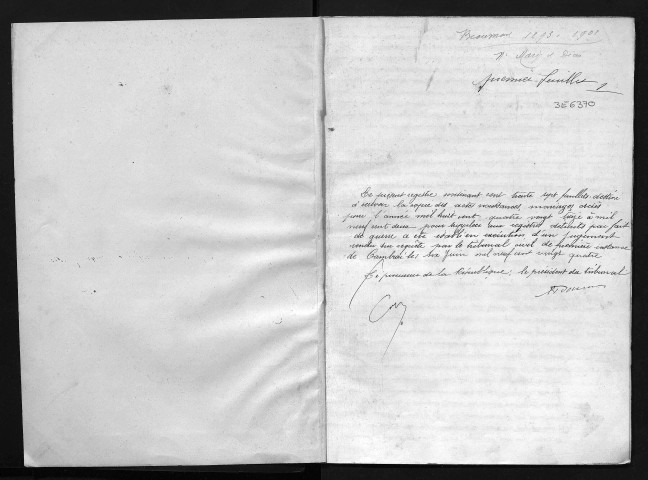 Beaumont 1893-1901
N. Mar. et Décès
premier feuillet 1
3E6370
Le présent registre contenant cent trente sept feuillets destiné
à recevoir la copie des actes naissances, mariages décès
pour l'année mil huit cent quatre vingt treize à mil
neuf cent deux pour suppléer aux registres détruits par fait
de guerre a été établi en exécution d'un jugement
rendu sur requête par le tribunal civil de première instance
de Cambrai les six Juin mil neuf cent vingt quatre
Le procureur de la République, le président du tribunal